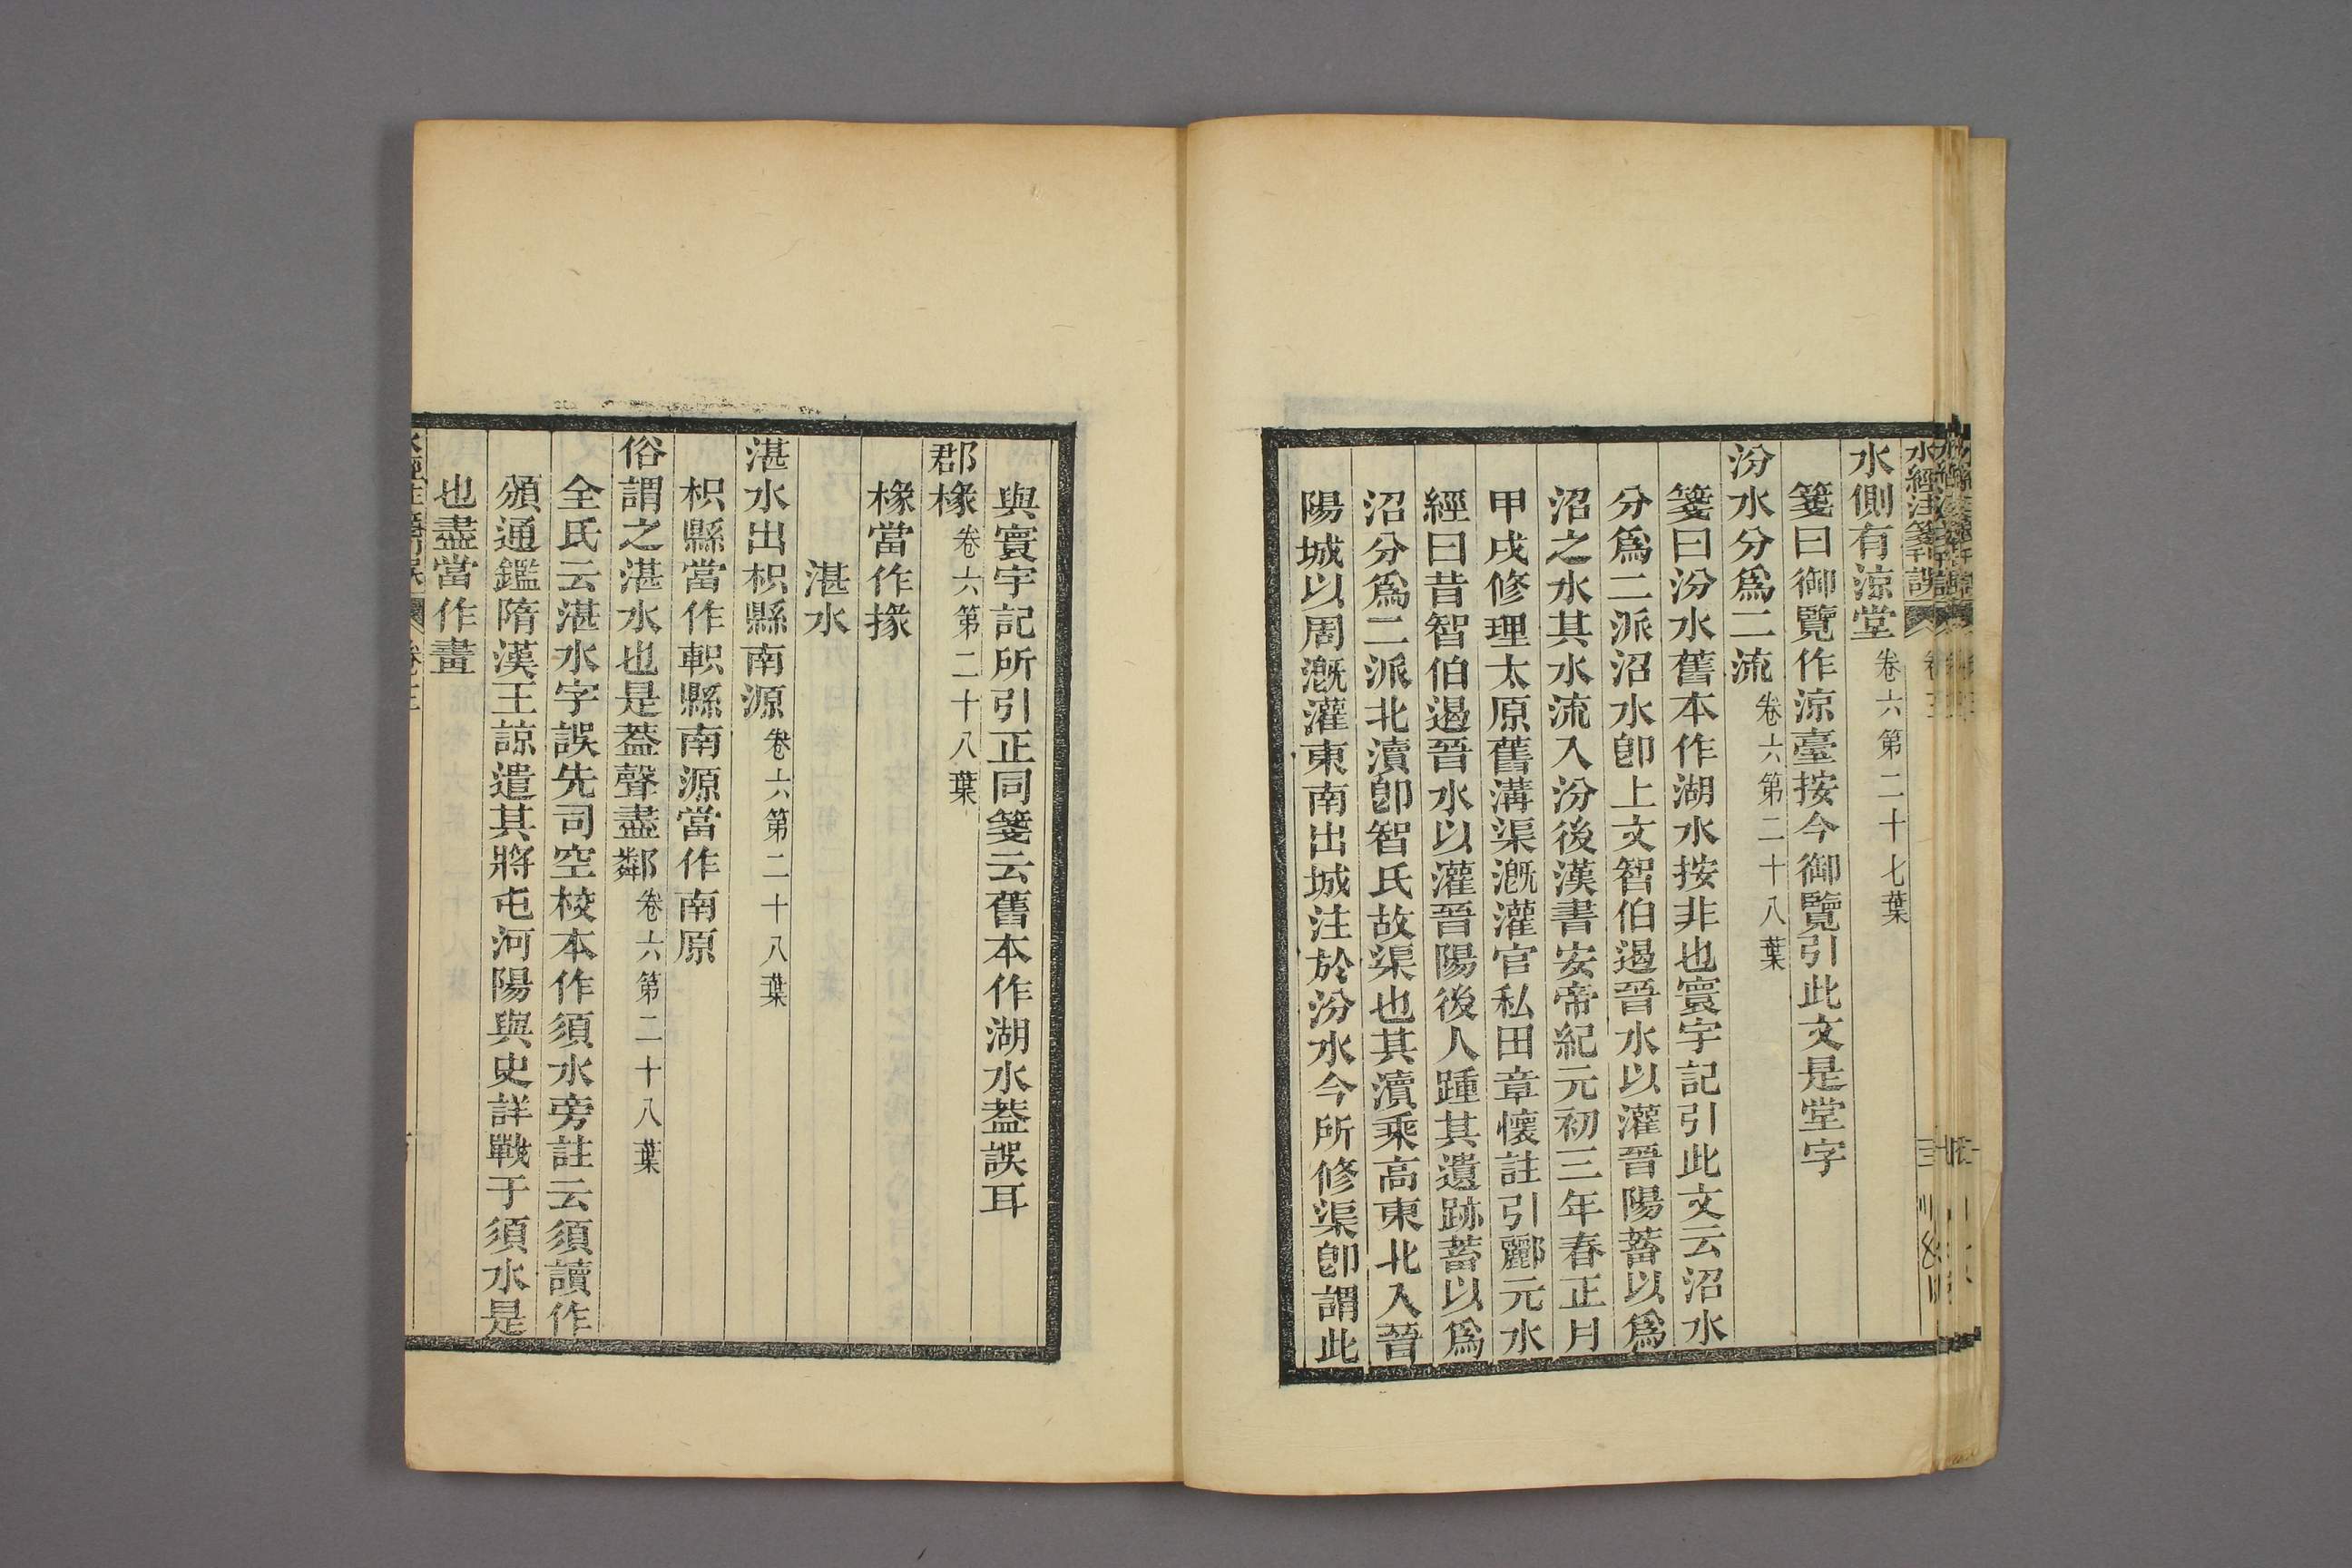 水經注箋刊誤 卷三
水側有涼堂卷六第二十七葉
箋曰御覽作涼臺按今御覽引此文是堂字
汾水分爲二流卷六第二十八葉
箋曰汾水舊本作湖水按非也寰宇記引此文云沼水
分爲二派沼水卽上文智伯遏晉水以灌晉陽蓄以爲
沼之水其水流入汾後漢書安帝紀元初三年春正月
甲戌修理太原舊溝渠漑灌官私田章懷註引酈元水
經曰昔智伯遏晉水以灌晉陽後人踵其遺跡蓄以爲
沼分爲二派北瀆卽智氏故渠也其瀆乘高東北入晉
陽城以周漑灌東南出城注於汾水今所修渠卽謂此
與寰宇記所引正同箋云舊本作湖水葢誤耳
郡椽卷六第二十八葉
椽當作掾
湛水
湛水出枳縣南源卷六第二十八葉
枳縣當作軹縣南源當作南原
俗謂之湛水也是葢聲盡鄰卷六第二十八葉
全氏云湛水字誤先司空校本作須水旁註云須讀作
頮通鑑隋漢王諒遣其將屯河陽與史詳戰于須水是
也盡當作畫